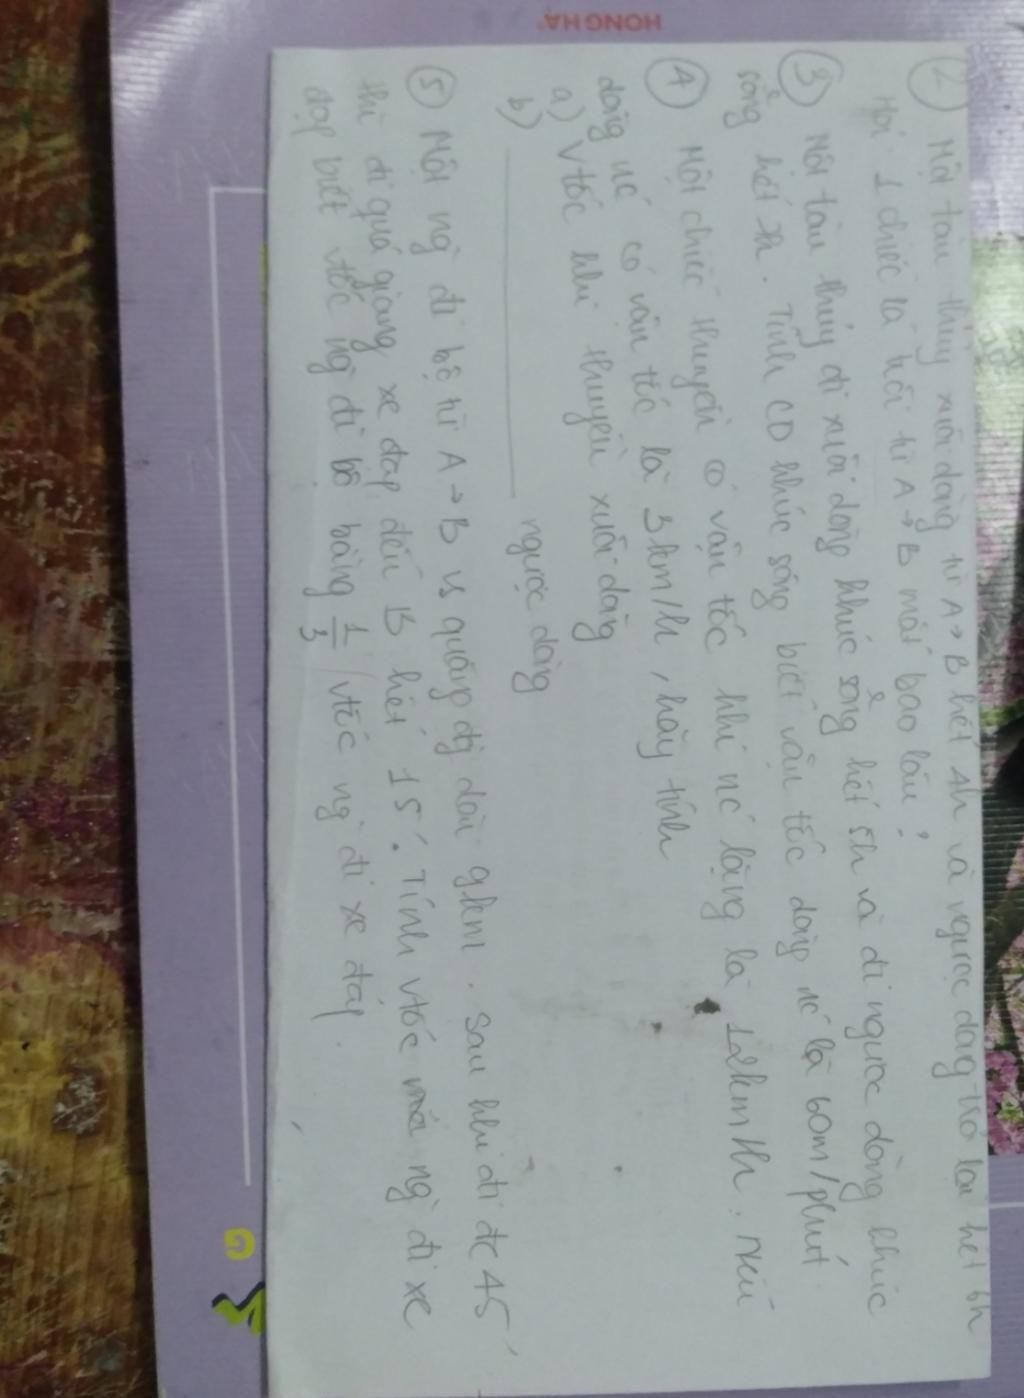 HONG HA
② Một tàu thủy xuôi dòng từ A→B hết 4h và ngược dòg trở lại hết 6h
Hỏi 1 chiếc là trôi từ A→B mất bao lâu?
③ Một tàu thủy đi xuôi dòng khúc sông hết 5h và đi ngược dòng khúc
sông hết 7h. Tính CD khúc sông biết vận tốc dòng nc là 60m/phút
④ Một chiếc thuyền có vận tốc khi nc lặng là 12km/h. Nếu
dòng nc có vận tốc là 3km/h, hãy tính
a) Vtốc khi thuyền xuôi dòng
b) ngược dòng
⑤ Một ng đi bộ từ A→B vs quãng đg dài 9km. Sau khi đi đc 45'
thì đi quá giang xe đạp đến B hết 15'. Tính vtốc mà ng đi xe
đạp biết vtốc ng đi bộ bằng 1/3 vtốc ng đi xe đạp.
G